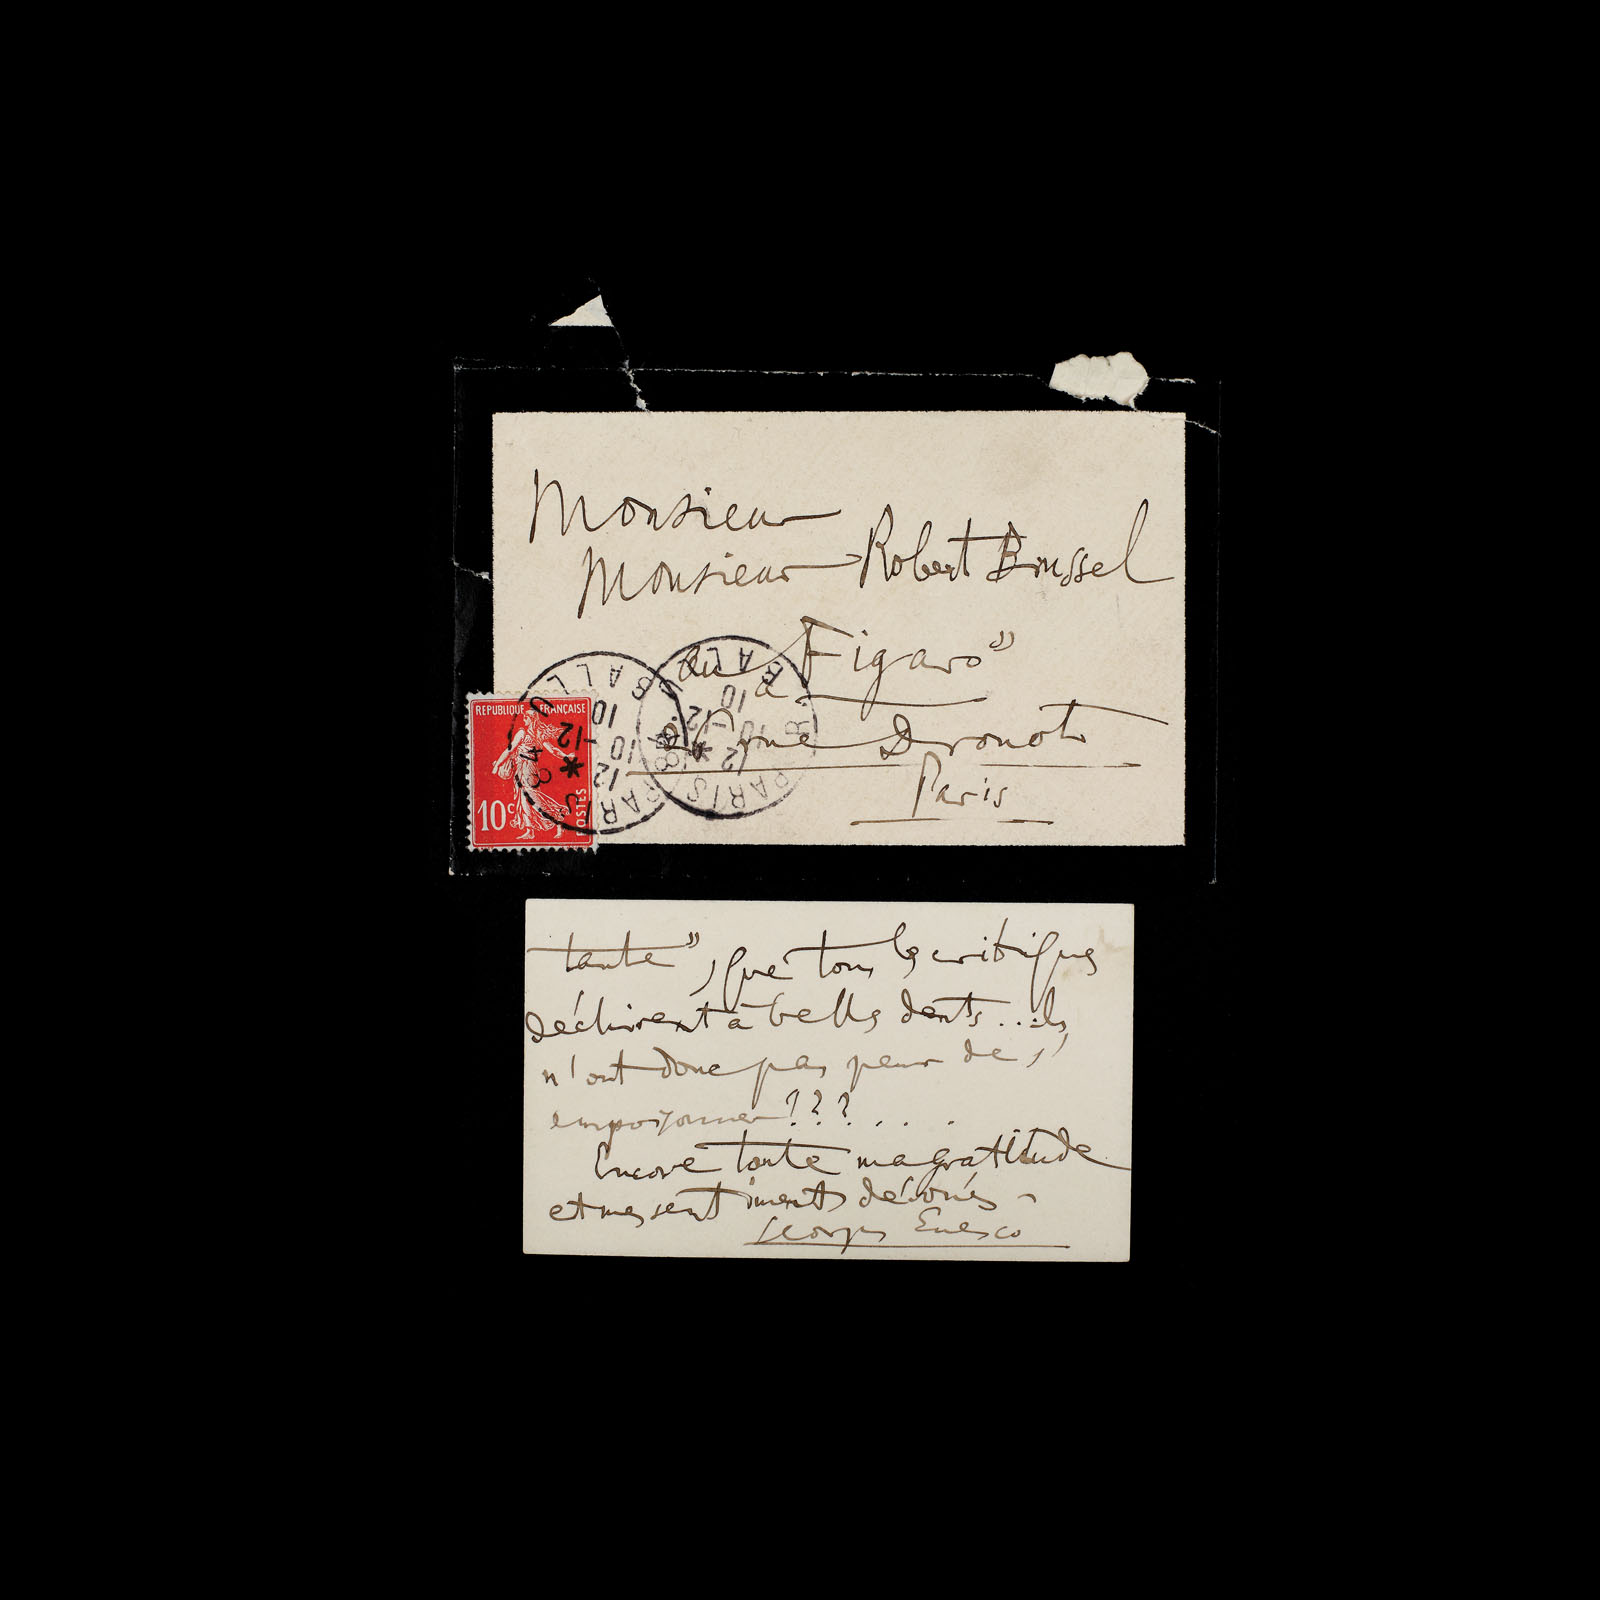 Monsieur
Monsieur Robert Brussel
au Figaro"
rue Drouot
Paris
REPUBLIQUE FRANÇAISE
10c POSTES
PARIS
12 *
10 -12
10
PARIS
12 *
10 -12
10
tante", que tous les critiques
déchirent à belles dents... ils
n'ont donc pas peur de s'
empoisonner???....
Encore toute ma gratitude
et mes sentiments dévoués -
Georges Enesco